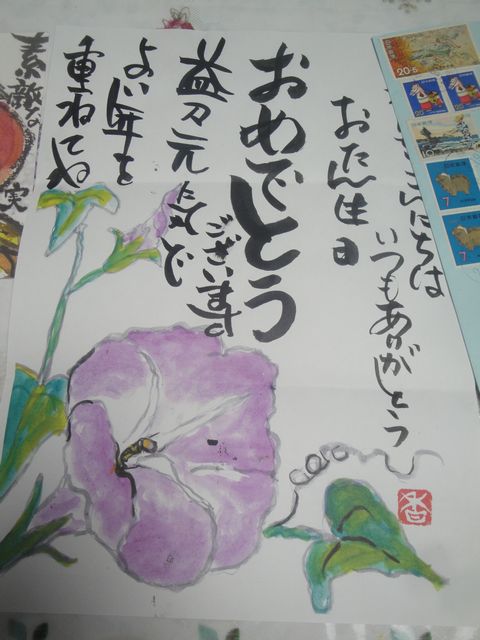 こんにちは
いつもありがとう
おたん生日
おめでとう
ございます。
益々元気で
よい年を
重ねてね
香
素敵な
実
20+5
7
7